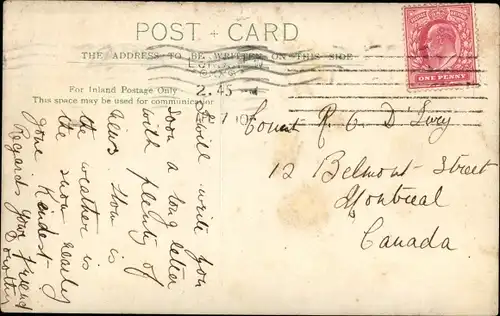 POST CARD
THE ADDRESS TO BE WRITTEN ON THIS SIDE
For Inland Postage Only
This space may be used for communication
2.45
ONE PENNY
Count R. C D'Ivry
12 Belmont Street
Montreal
Canada
I will write you
soon a long letter
with plenty of
news. How is
the weather is
the snow nearly
gone Kindest
Regards your Friend